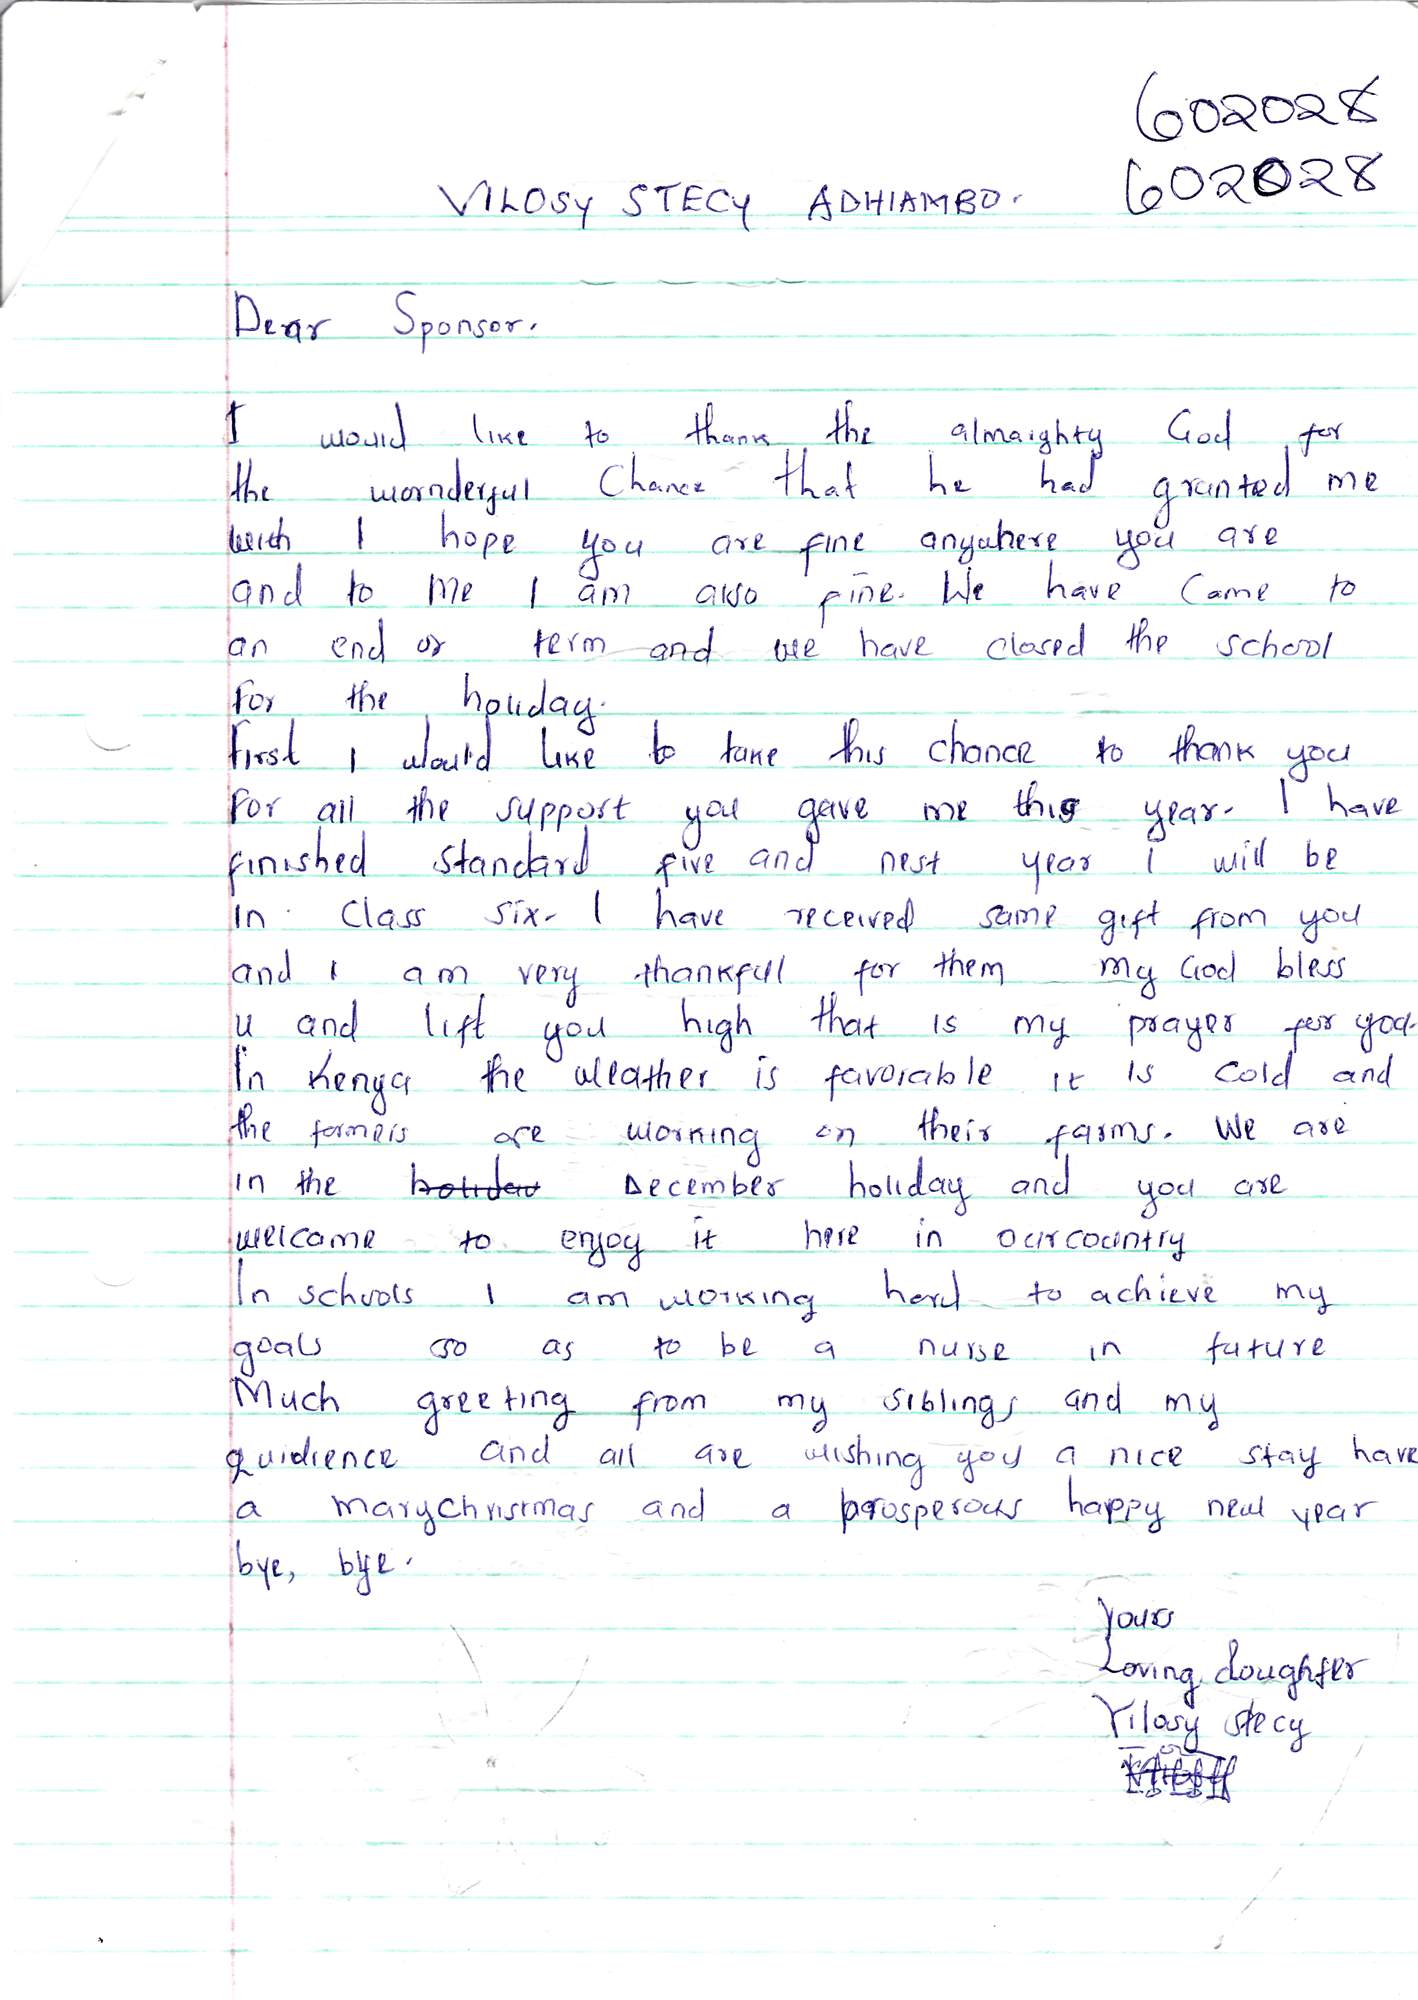 602028
602028
VILOSY STECY ADHIAMBO.
Dear Sponsor.
I would like to thank the almaighty God for
the wornderful Chance that he had granted me
with I hope you are fine anywhere you are
and to me I am also fine. We have came to
an end of term and we have closed the school
for the holiday.
First I would like to take this chance to thank you
for all the support you gave me this year. I have
finished standard five and nest year I will be
in class six. I have received same gift from you
and I am very thankful for them my God bless
u and lift you high that is my prayer for you.
In Kenya the weather is favorable it is cold and
the farmers are working on their farms. We are
in the holiday December holiday and you are
welcame to enjoy it here in ourcountry
In schools I am working hard to achieve my
goals so as to be a nurse in future
Much greeting from my siblings and my
guidience and all are wishing you a nice stay have
a marychristmas and a prosperous happy new year
bye, bye.
Yours
Loving doughter
Vilosy stecy